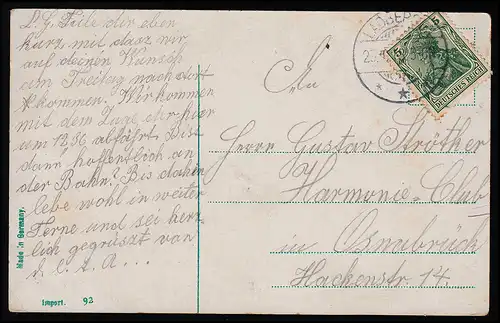 L. G. Teile dir eben
kurz mit dasz wir
auf deinen Wunsch
am Freitag nach dort
kommen. Wir kommen
mit dem Zuge der hier
um 12.56 abfährt. Bist
dann hoffentlich an
der Bahn? Bis dahin
lebe wohl in weiter
Ferne und sei herz
lich gegrüszt von
d. l. A...
Made in Germany.
Import. 92
5
DEUTSCHES REICH
An
Herrn Gustav Ströther
Harmonie-Club
in Osnabrück
Hackenstr 14.